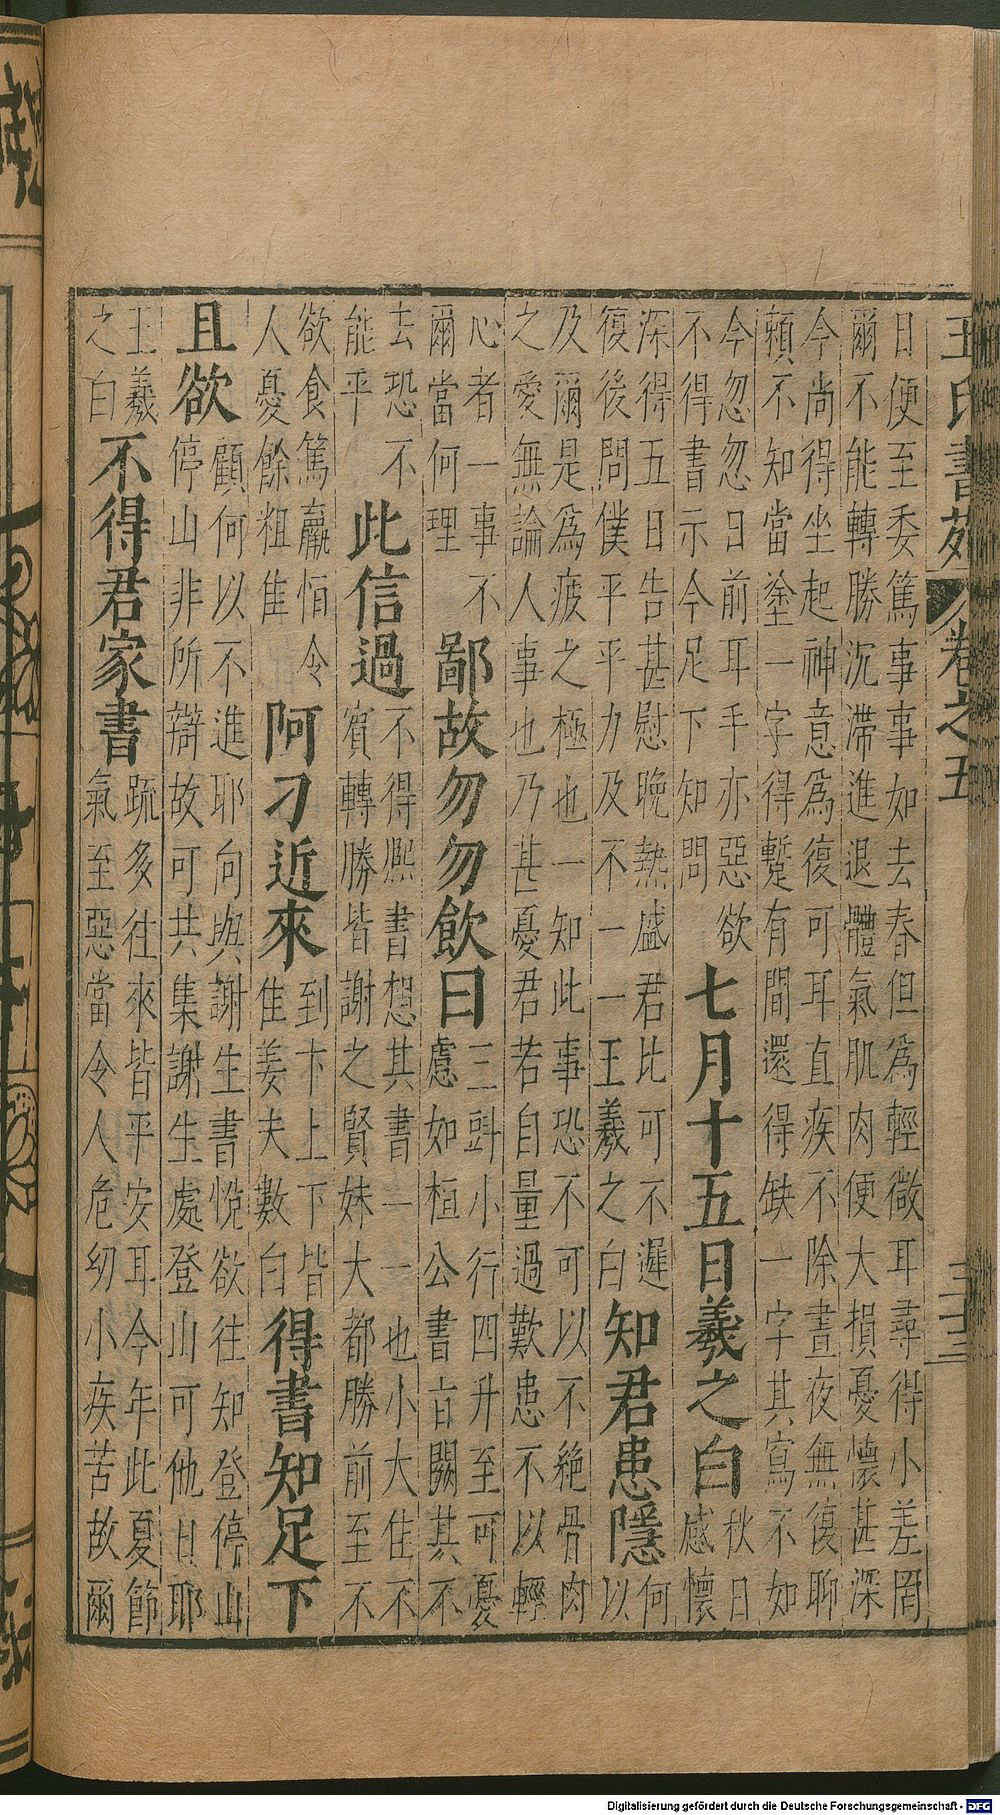 王氏書苑 卷之五
日便至委篤事事如去春但為輕微耳尋得小差罔
爾不能轉勝沉滯進退體氣肌肉便大損憂懷甚深
今尚得坐起神意為復可耳直疾不除晝夜無復聊
賴不知當塗一字得蹔有間還得缺一字其寫不如
今忽忽日前耳手亦惡欲
不得書示令足下知問
七月十五日羲之白
秋日
感懷
深得五日告甚慰晚熱盛君比可不遲
復後問僕平平力及不一一王羲之白
知君患隱
何
以
及爾是為疲之極也一知此事恐不可以不絕骨肉
之愛無論人事也乃甚憂君若自量過歎患不以輕
心者一事不
爾當何理
鄙故勿勿飲曰
三㪷小行四升至可憂
慮如桓公書亡闕其不
去恐不
能平
此信過
不得熈書想其書一一也小大佳不
賓轉勝皆謝之賢妹大都勝前至不
欲食篤羸恒令
人憂餘粗佳
阿刁近來
到卞上下皆
佳姜夫數白
得書知足下
且欲
顧何以不進耶向與謝生書悅欲往知登停山
停山非所辯故可共集謝生處登山可他日耶
王羲
之白
不得君家書
疏多往來皆平安耳今年此夏節
氣至惡當令人危幼小疾苦故爾
Digitalisierung gefördert durch die Deutsche Forschungsgemeinschaft - DFG